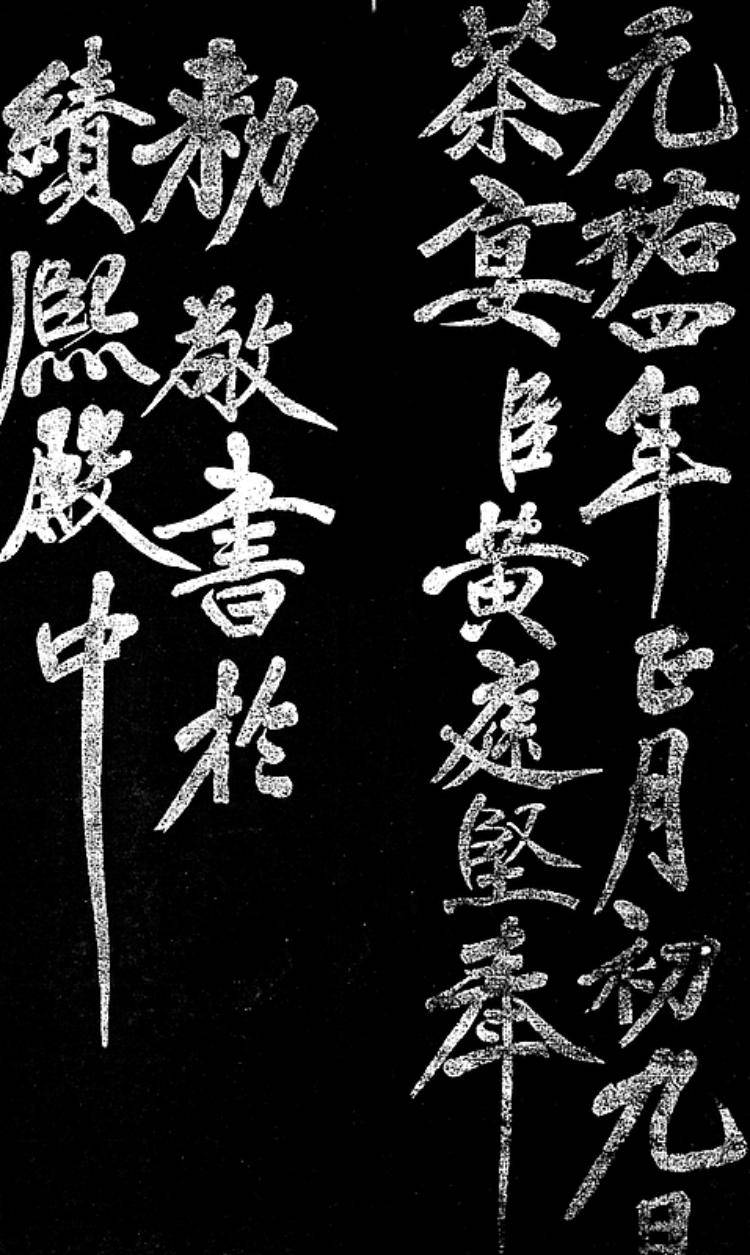 元祐四年正月初九日
茶宴臣黃庭堅奉
敕敬書於
績熙殿中